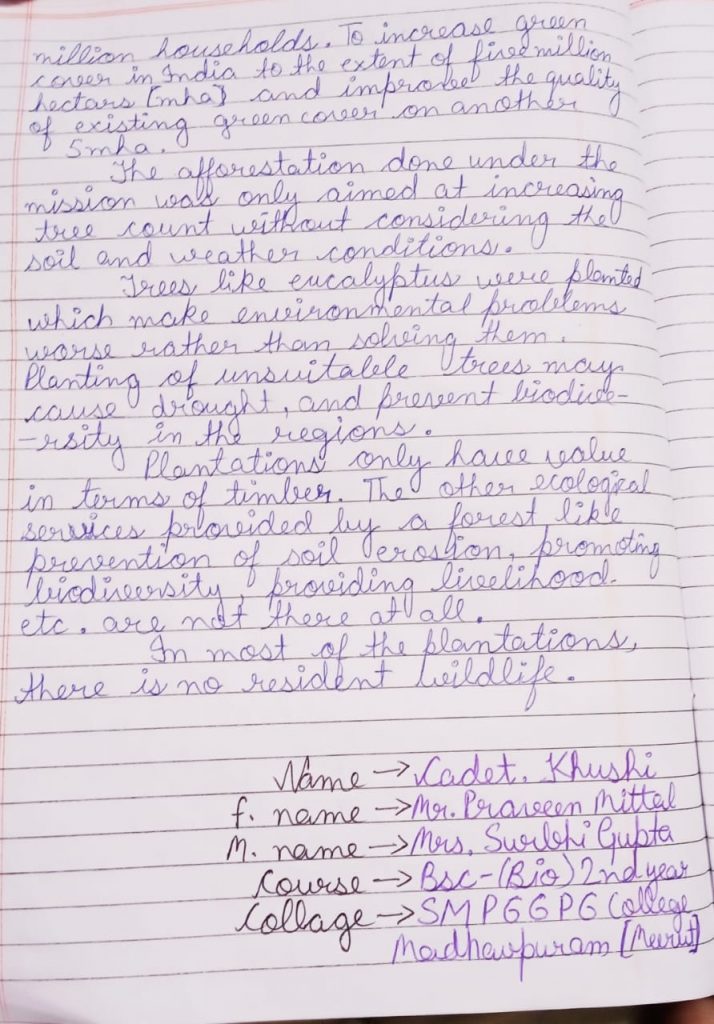 million households. To increase green
cover in India to the extent of five million
hectars [mha] and improve the quality
of existing green cover on another
5mha.
The afforestation done under the
mission was only aimed at increasing
tree count without considering the
soil and weather conditions.
Trees like eucalyptus were planted
which make environmental problems
worse rather than solving them.
Planting of unsuitable trees may
cause drought, and prevent biodive-
-rsity in the regions.
Plantations only have value
in terms of timber. The other ecological
services provided by a forest like
prevention of soil erosion, promoting
biodiversity, providing livelihood.
etc. are not there at all.
In most of the plantations,
there is no resident wildlife.
Name → Cadet. Khushi
f. name → Mr. Praveen Mittal
M. name → Mrs. Surbhi Gupta
Course → Bsc-(Bio) 2nd year
Collage → SMPGGPG College
Madhavpuram [Meerut]